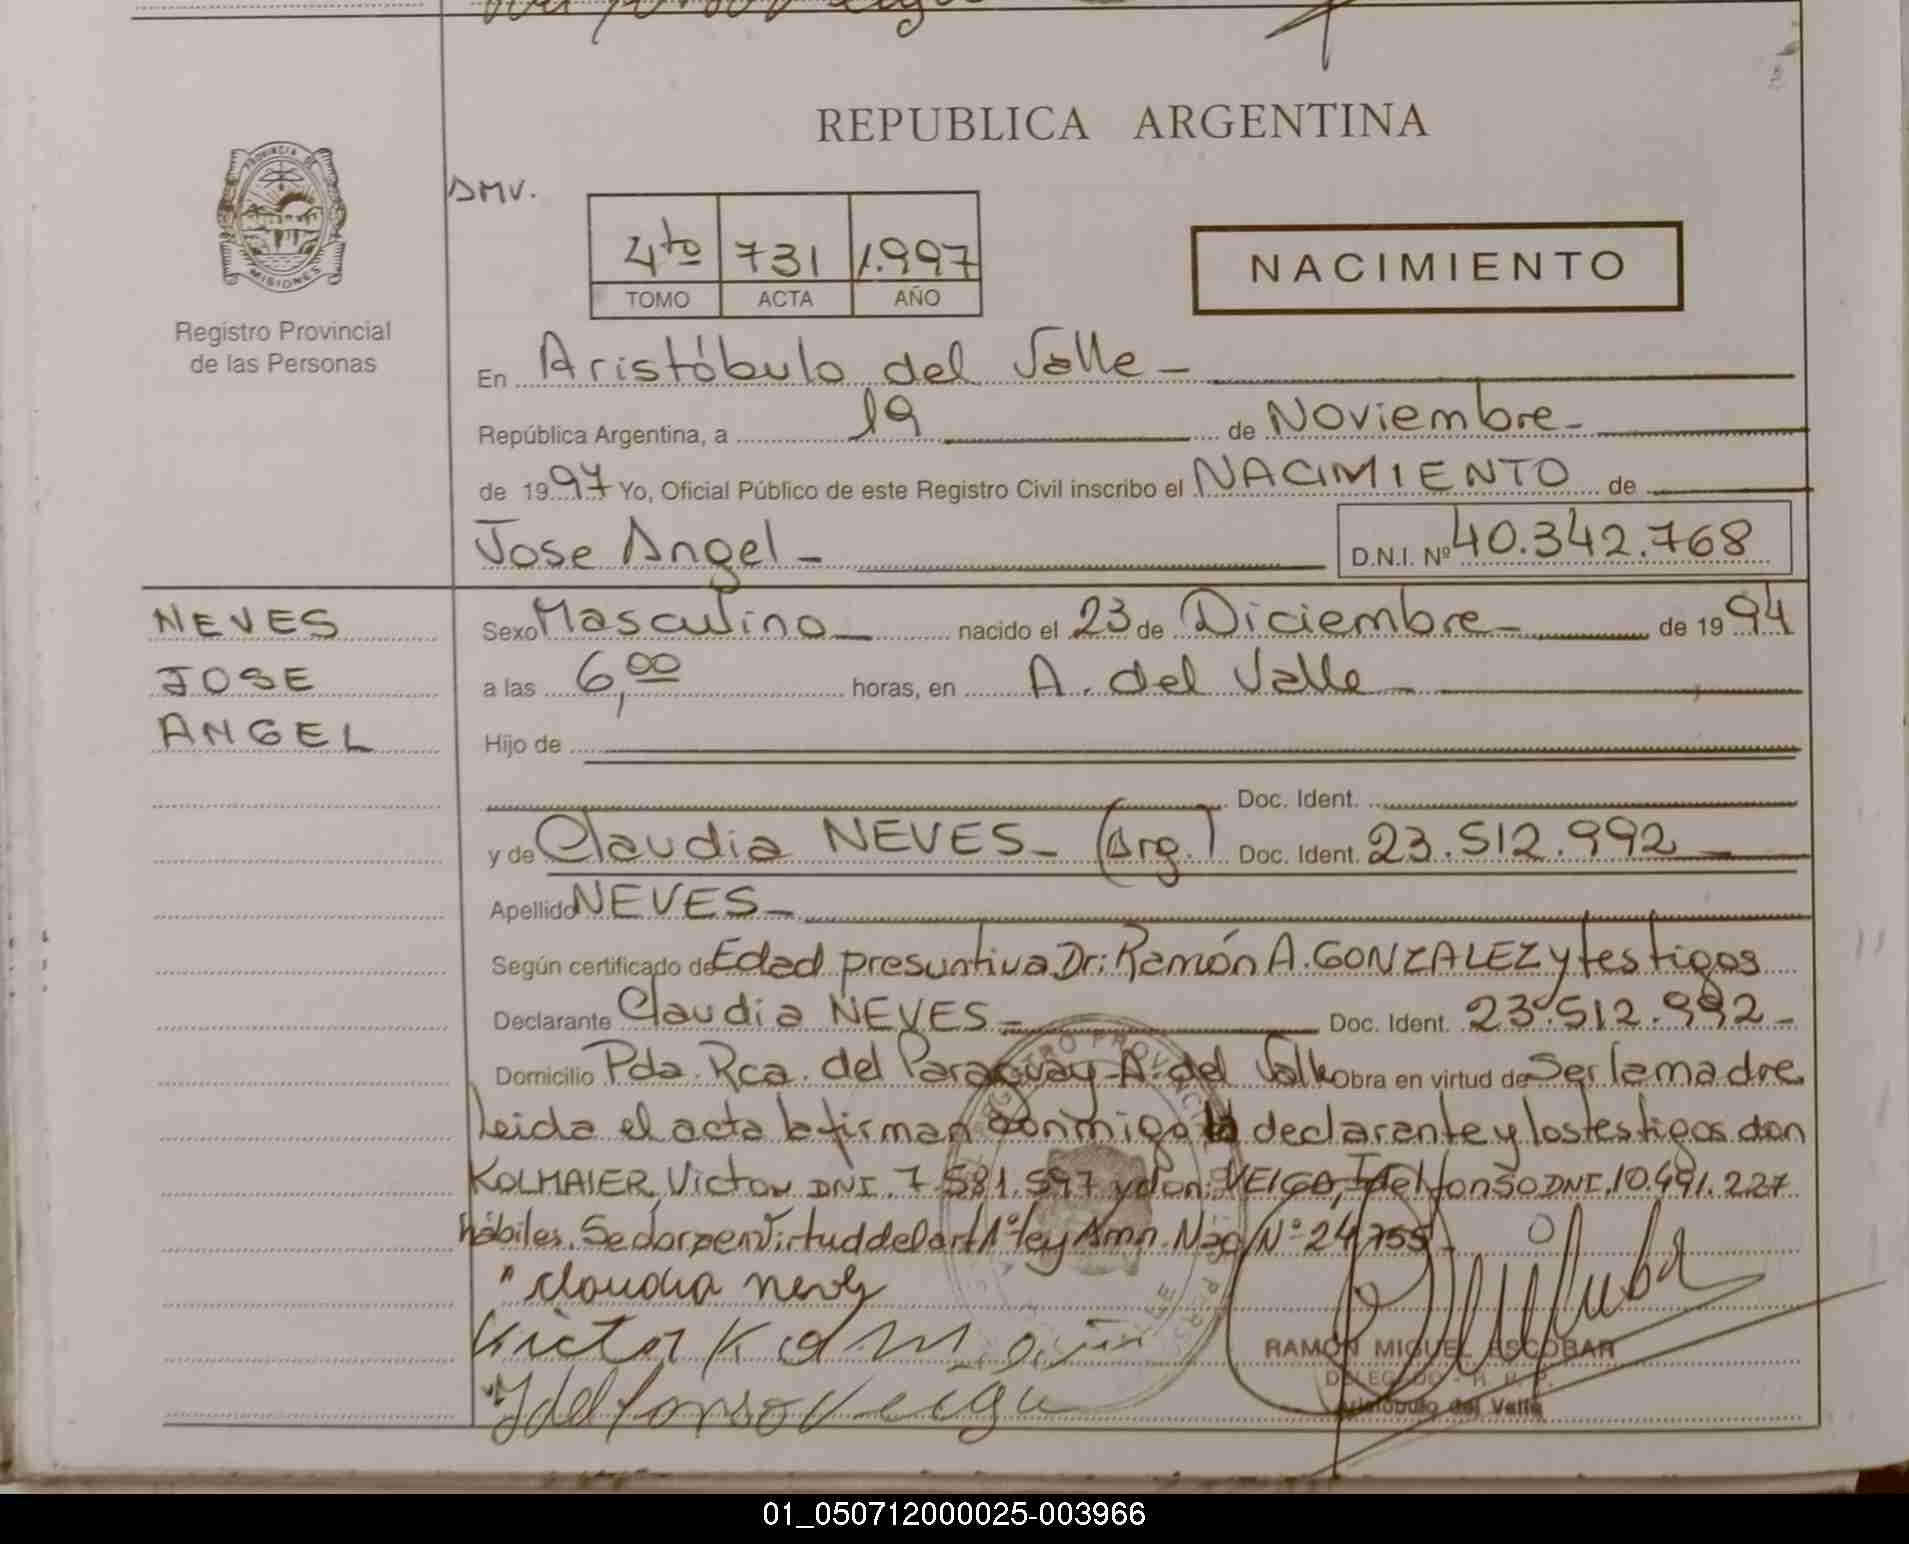 REPUBLICA ARGENTINA
PROVINCIA DE
MISIONES
Registro Provincial
de las Personas
DMV.
4to 731 1.997
TOMO ACTA AÑO
NACIMIENTO
En Aristóbulo del Valle
República Argentina, a 19 de Noviembre
de 1997 Yo, Oficial Público de este Registro Civil inscribo el NACIMIENTO de
Jose Angel D.N.I. Nº 40.342.768
NEVES
JOSE
ANGEL
Sexo Masculino nacido el 23 de Diciembre de 1994
a las 6,00 horas, en A. del Valle
Hijo de
Doc. Ident.
y de Claudia NEVES (Arg.) Doc. Ident. 23.512.992
Apellido NEVES
Según certificado de Edad presuntiva Dr: Ramón A. GONZALEZ y testigos
Declarante Claudia NEVES Doc. Ident. 23.512.992
Domicilio Pda. Rca. del Paraguay-A. del Valle obra en virtud de Ser la madre
leida el acta la firman conmigo la declarante y los testigos don
KOLMAIER, Victor DNI. 7.581.597 y don: VEIGA, Idelfonso DNI. 10.491.227
hábiles. virtud del art 1º ley Amn. Nº 24.755
Claudia neves
Victor
Idelfonso Veiga
RAMON MIGUEL ESCOBAR
DELEGADO - R. P. P.
Aristóbulo del Valle
01_050712000025-003966